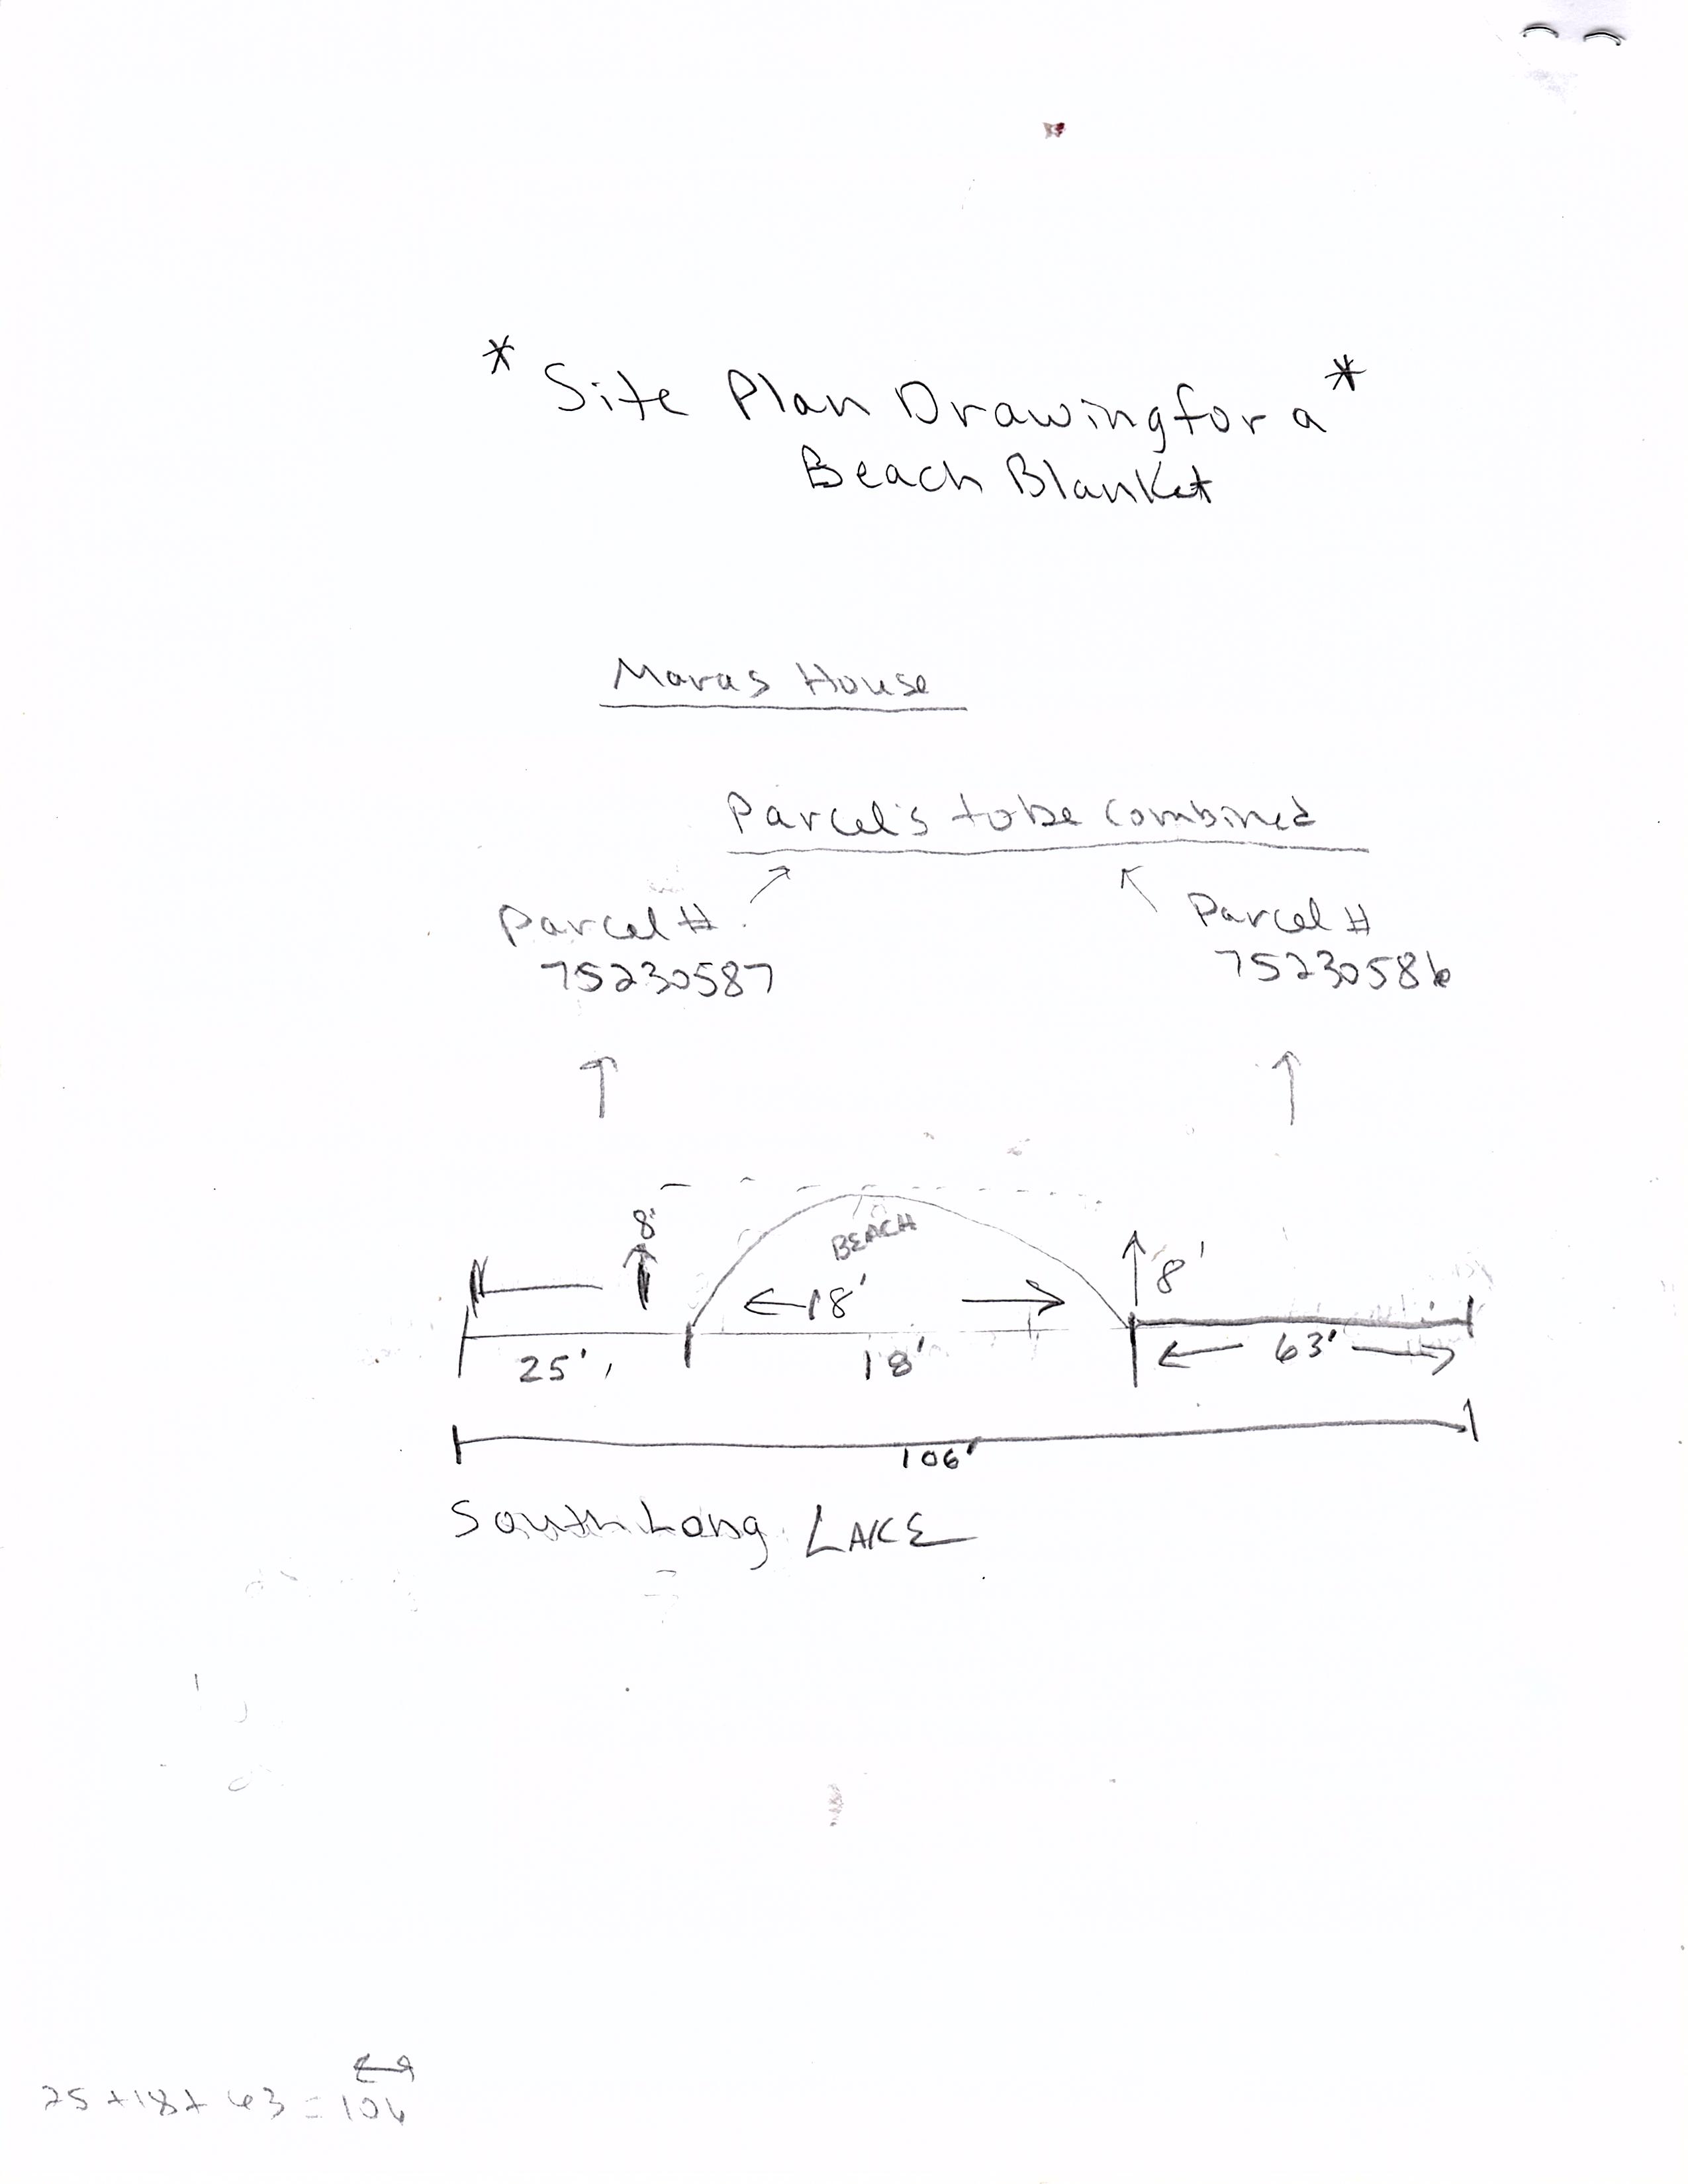 * Site Plan Drawing for a *
Beach Blanket
Maras House
Parcel's to be Combined
Parcel #
75230587
Parcel #
75230586
8'
BEACH
18'
8'
25'
18'
63'
106'
South Long LAKE
25+18+63=106